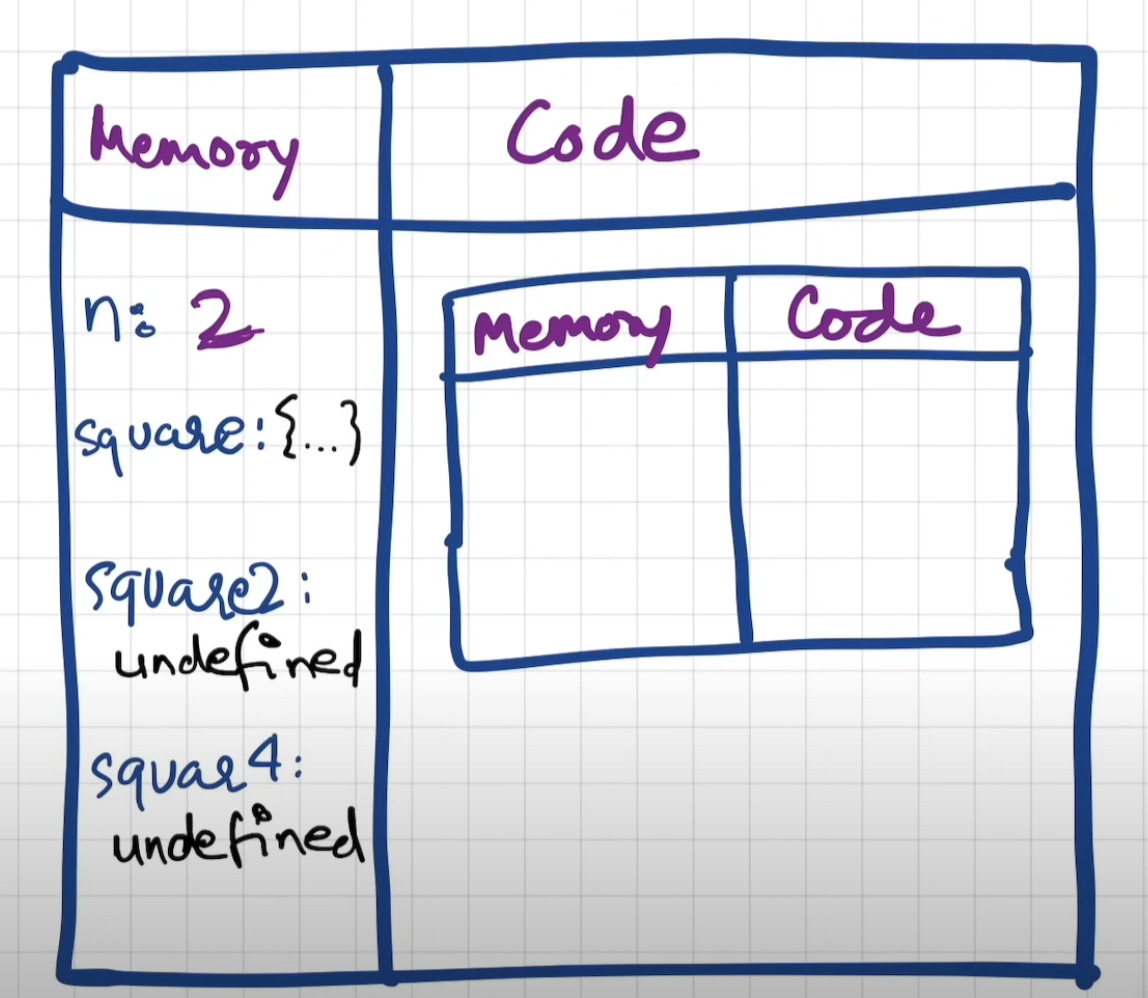 Memory
Code
n: 2
square:{...}
square2:
undefined
squar4:
undefined
Memory
Code